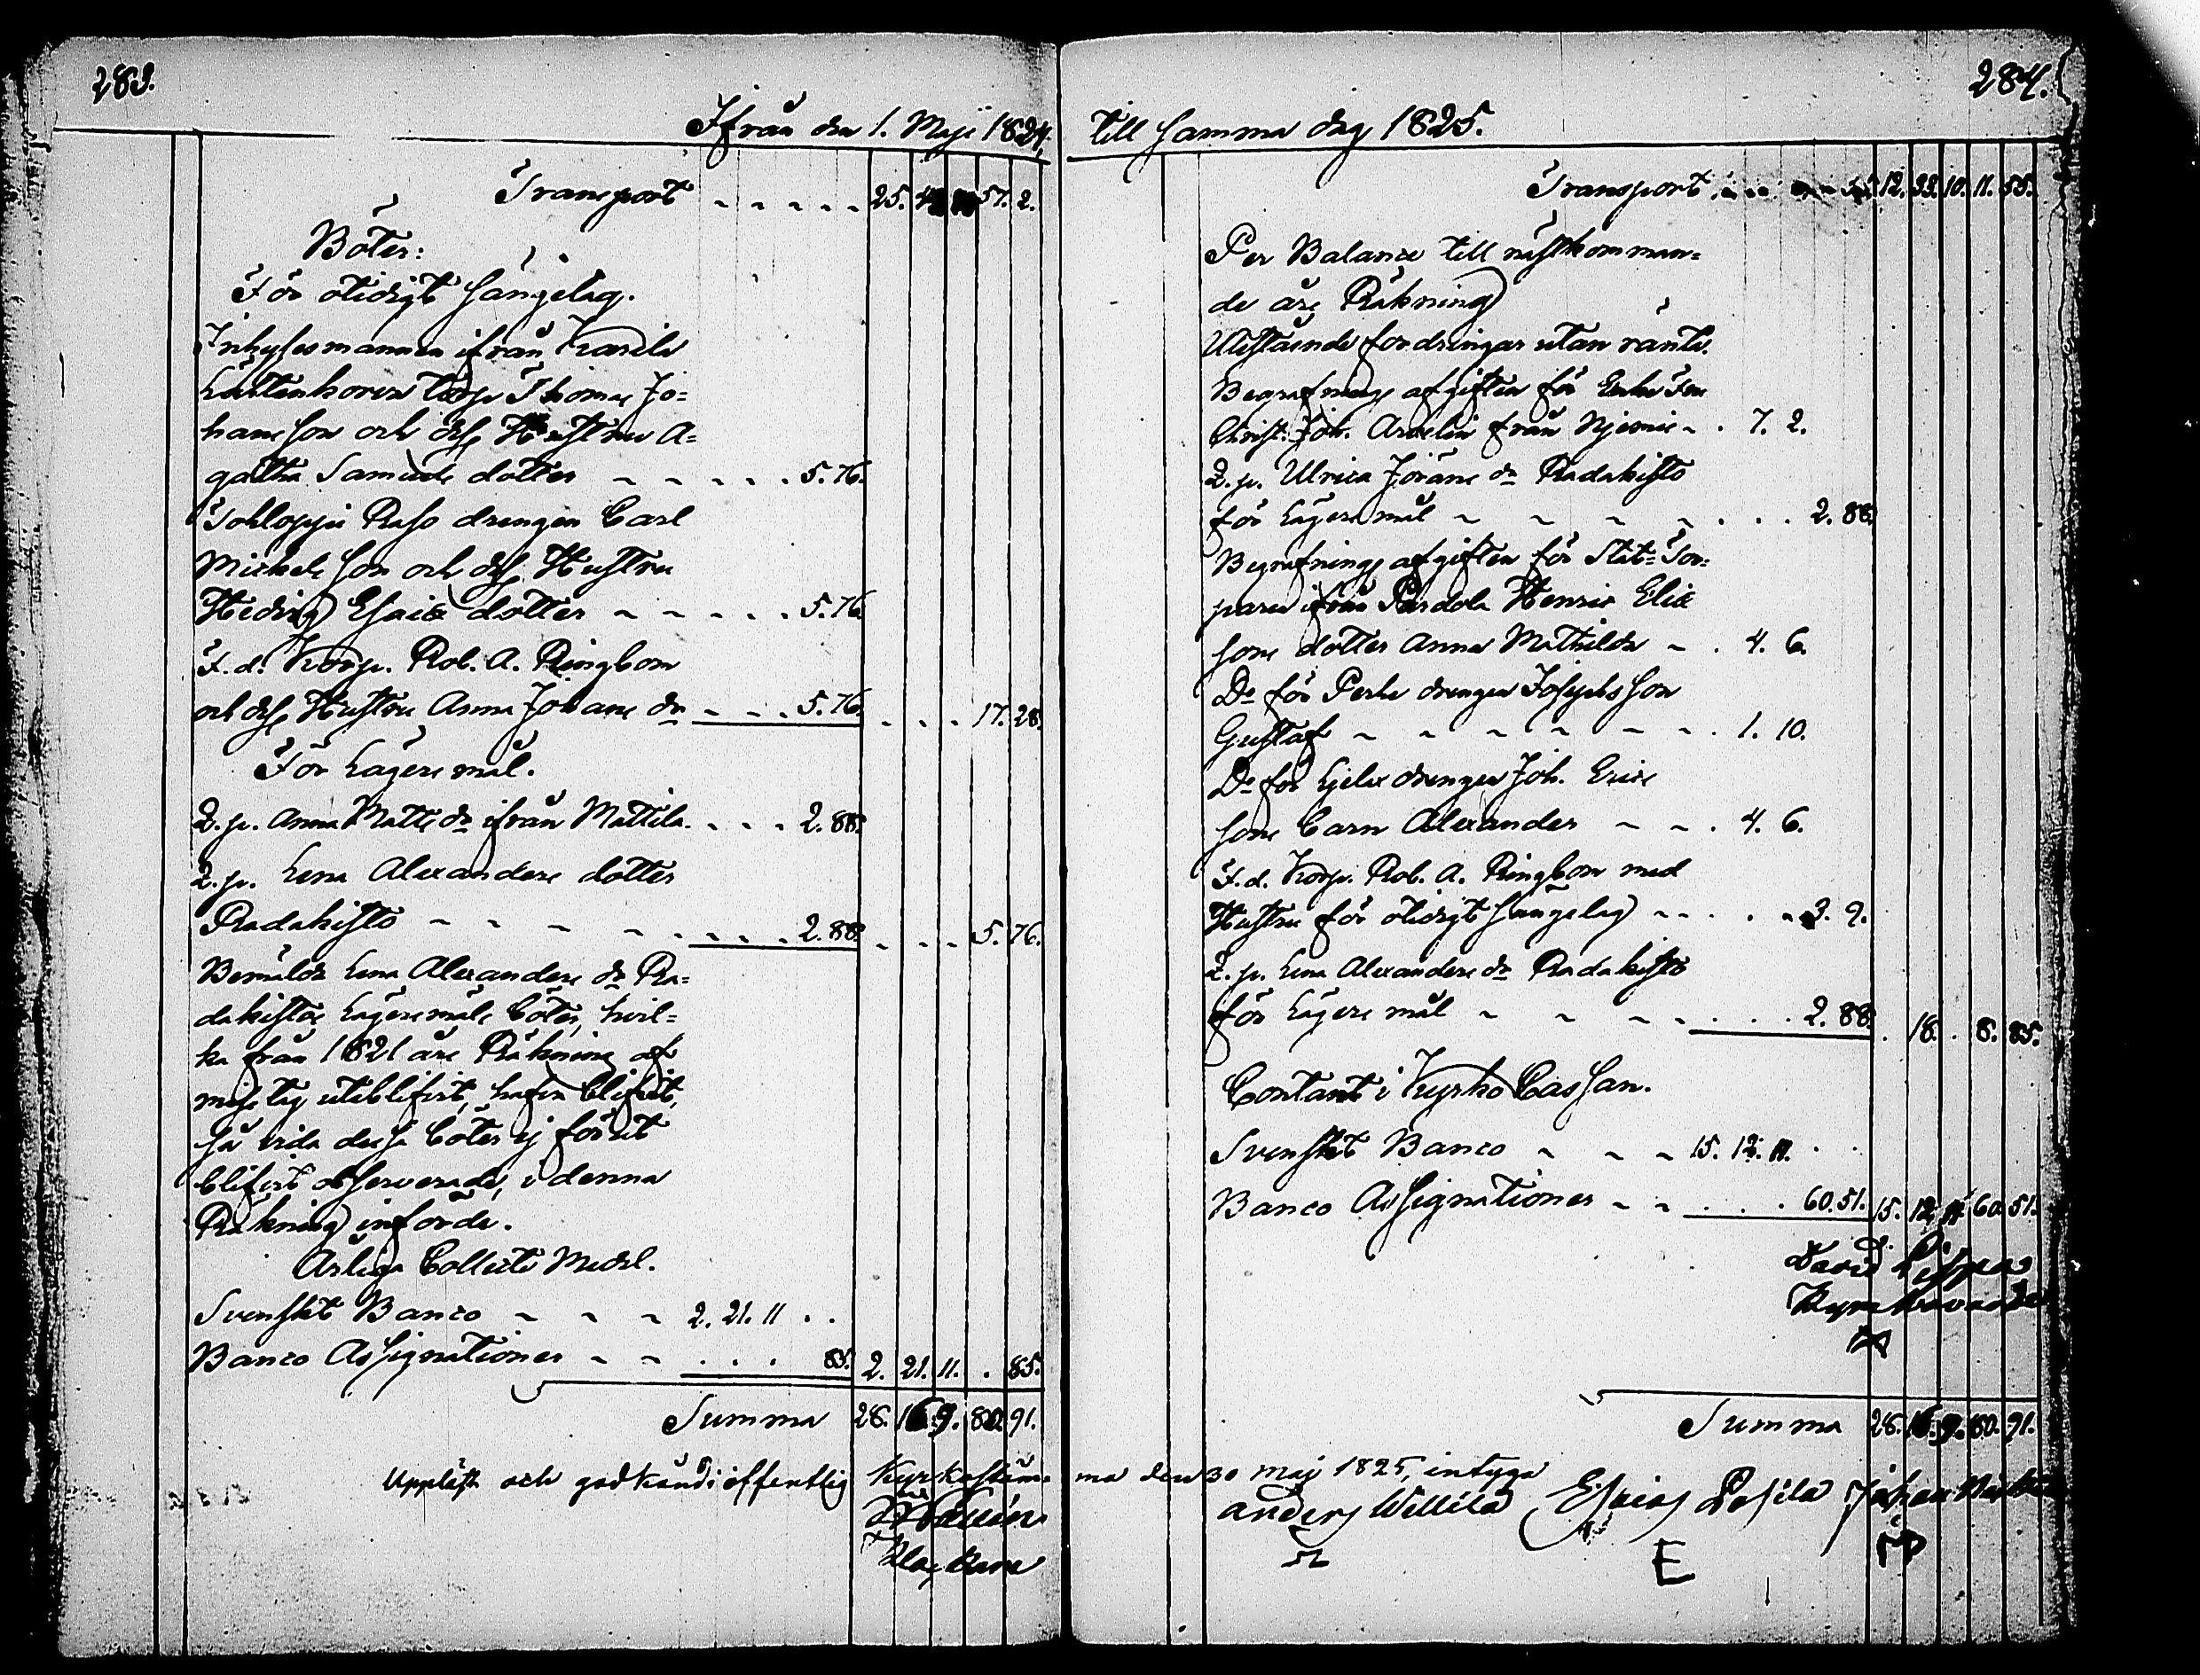 283.
Ifrån den 1. Maji 1824.
Transport - - - - - 25. 57. 2.
Böter:
För otidigt sängelag.
Inhysesmannen ifrån
torp. Thomas Jo=
hansson och dess Hustru A=
gatha Samuels dotter - - - - - 5.76.
Raso drengen Carl
Mickels son och dess Hustru
Hedvig Esaiæ dotter - - - - - 5.76.
F. d. Korp. Rob. A. Ringbom
och dess Hustru Anna Johans dr - - - 5.76. . . . 17. 28.
För Lägersmål.
Q. p. Anna Matts dr ifrån Mattila. - - - 2.88.
Q. p. Lena Alexanders dotter
Radakisto - - - - - - - 2.88. . . . 5. 76.
Bemälda Lena Alexanders dr Ra=
dakistos Lägersmåls böter, hvil=
ka från 1821 års Räkning af
misstag uteblifvit, hafva blifvit,
så vida dessa böter ej förut
blifvit observerade, i denna
Räkning införde.
Årliga Collect Medel.
Svenskt Banco - - - 2. 21. 11 . .
Banco Assignationer - - . . . 85. 2. 21. 11. . 85.
Summa 28. 16. 9. 80. 91.
284.
till samma dag 1825.
Transport 12. 33. 10. 11. 55.
Per Balance till nästkomman=
de års Räkning
Utestående fordringar utan ränta.
Begrafnings afgiften för Enke Fru
Christ. Joh. Arvelin från Njemis - . 7. 2.
Q. p. Ulrica Jörans dr Radakisto
för Lägersmål - - - - . . . 2. 88.
Begrafnings afgiften för Stat=Tor=
paren ifrån Pardola Henric Eliæ
sons dotter Anna Mathilda - . 4. 6.
Do för Perhe drengen Josephs son
Gustaf - - - - - - . 1. 10.
Do för drengen Joh. Erics
sons Barn Alexander - - . 4. 6.
F. d. Korp. Rob. A. Ringbom med
Hustru för otidigt sängelag - - . . - 3. 9.
Q. p. Lena Alexanders dr Radakisto
för Lägersmål - - - - . . . 2. 88. . 18. . 8. 85.
Contant i Kyrko Cassan.
Svenskt Banco - - - 15. 12. 11. . .
Banco Assignationer - - . . . 60.51. 15. 12. 11. 60. 51.
David
Summa 28. 16. 9. 80. 91.
Uppläst och godkänd i offentlig Kyrkostäm- ma den 30 maj 1825, intyga
Anders Willila Esaias Johan
E